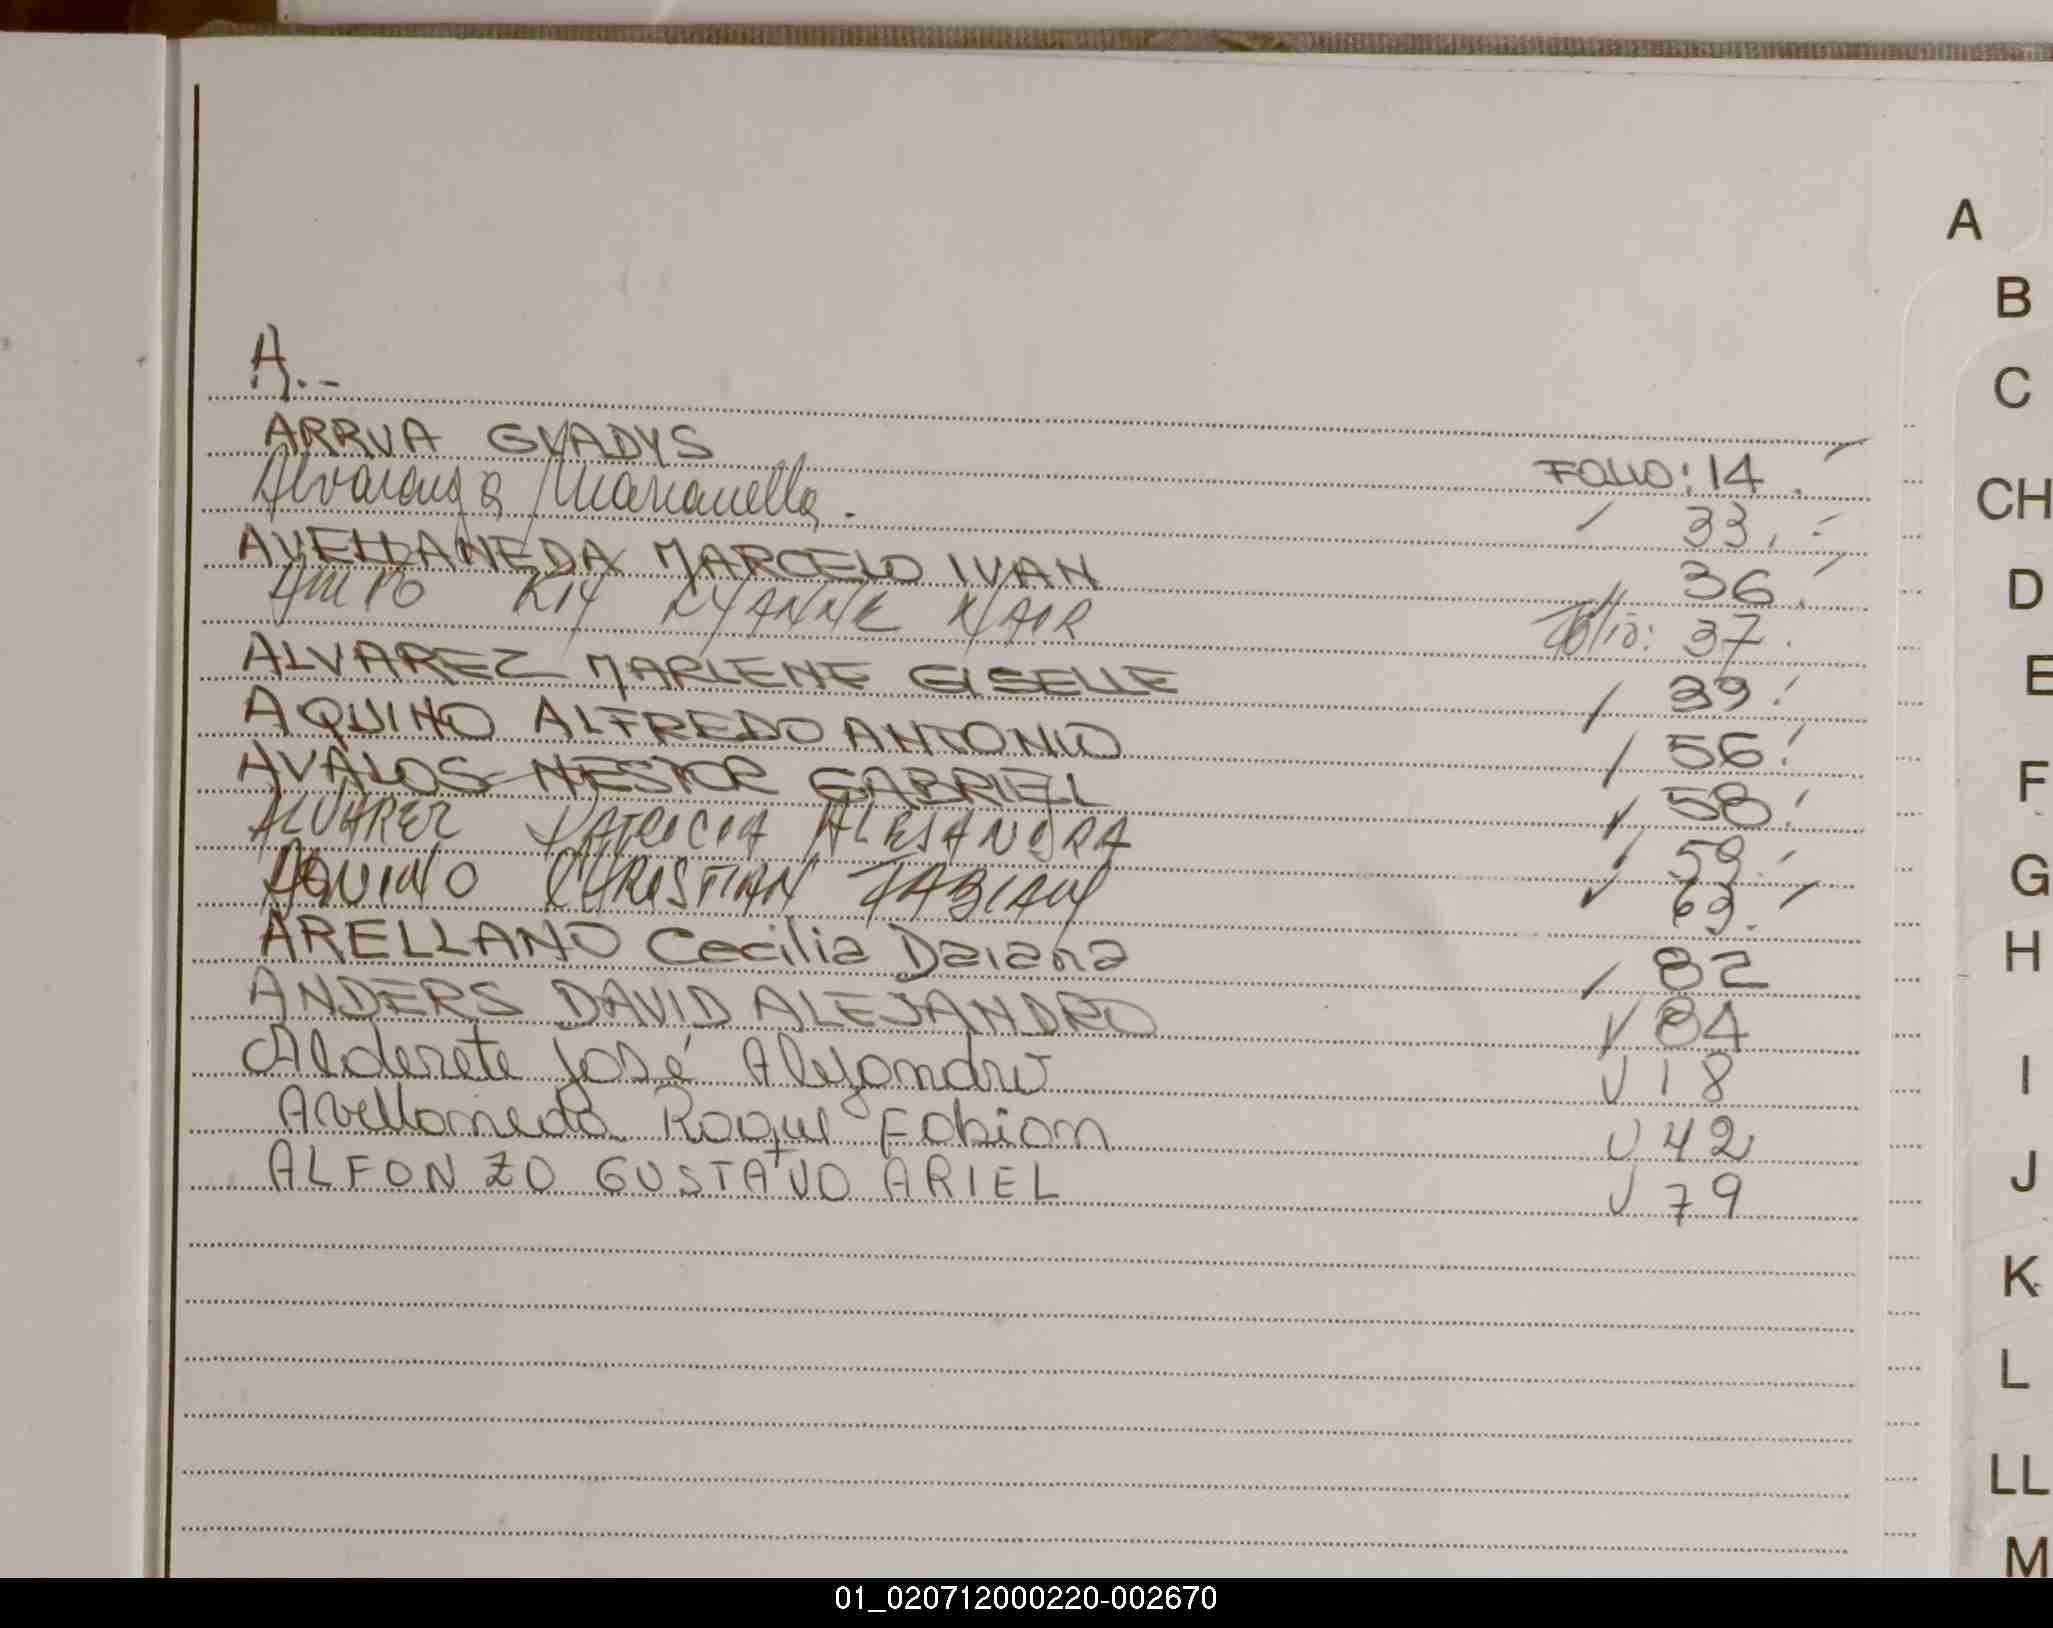 A.-
ARRUA GLADYS FOLIO: 14.
Alvarenga Marianella. 33.
AVELLANEDA MARCELO IVAN 36.
RIX NAIR Folio: 37.
ALVAREZ MARLENE GISELLE 39.
AQUINO ALFREDO ANTONIO 56.
AVALOS NESTOR GABRIEL 58.
ALVAREZ PATRICIA ALEJANDRA 59.
AQUINO CHRISTIAN FABIAN 69.
ARELLANO Cecilia Daiana 82
ANDERS DAVID ALEJANDRO 84
Alderete José Alejandro 18
Avellaneda Roque Fabian 42
ALFONZO GUSTAVO ARIEL 79
A
B
C
CH
D
E
F
G
H
I
J
K
L
LL
M
01_020712000220-002670